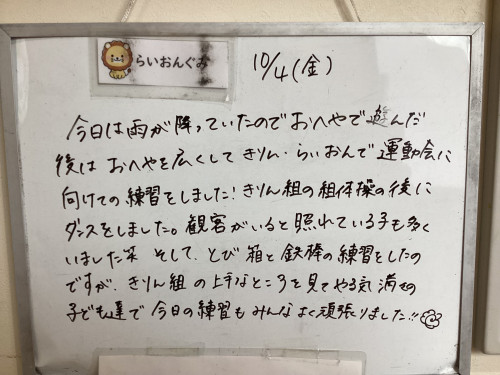 らいおんぐみ
10/4(金)
今日は雨が降っていたのでおへやで遊んだ
後は おへやを広くして きりん・らいおんで 運動会に
向けての練習をしました!きりん組の組体操の後に
ダンスをしました。観客がいると照れている子も多く
いました笑 そして、とび箱と鉄棒の練習をしたの
ですが、きりん組の上手なところを見てやる気満々の
子ども達で今日の練習もみんなよく頑張りました!!